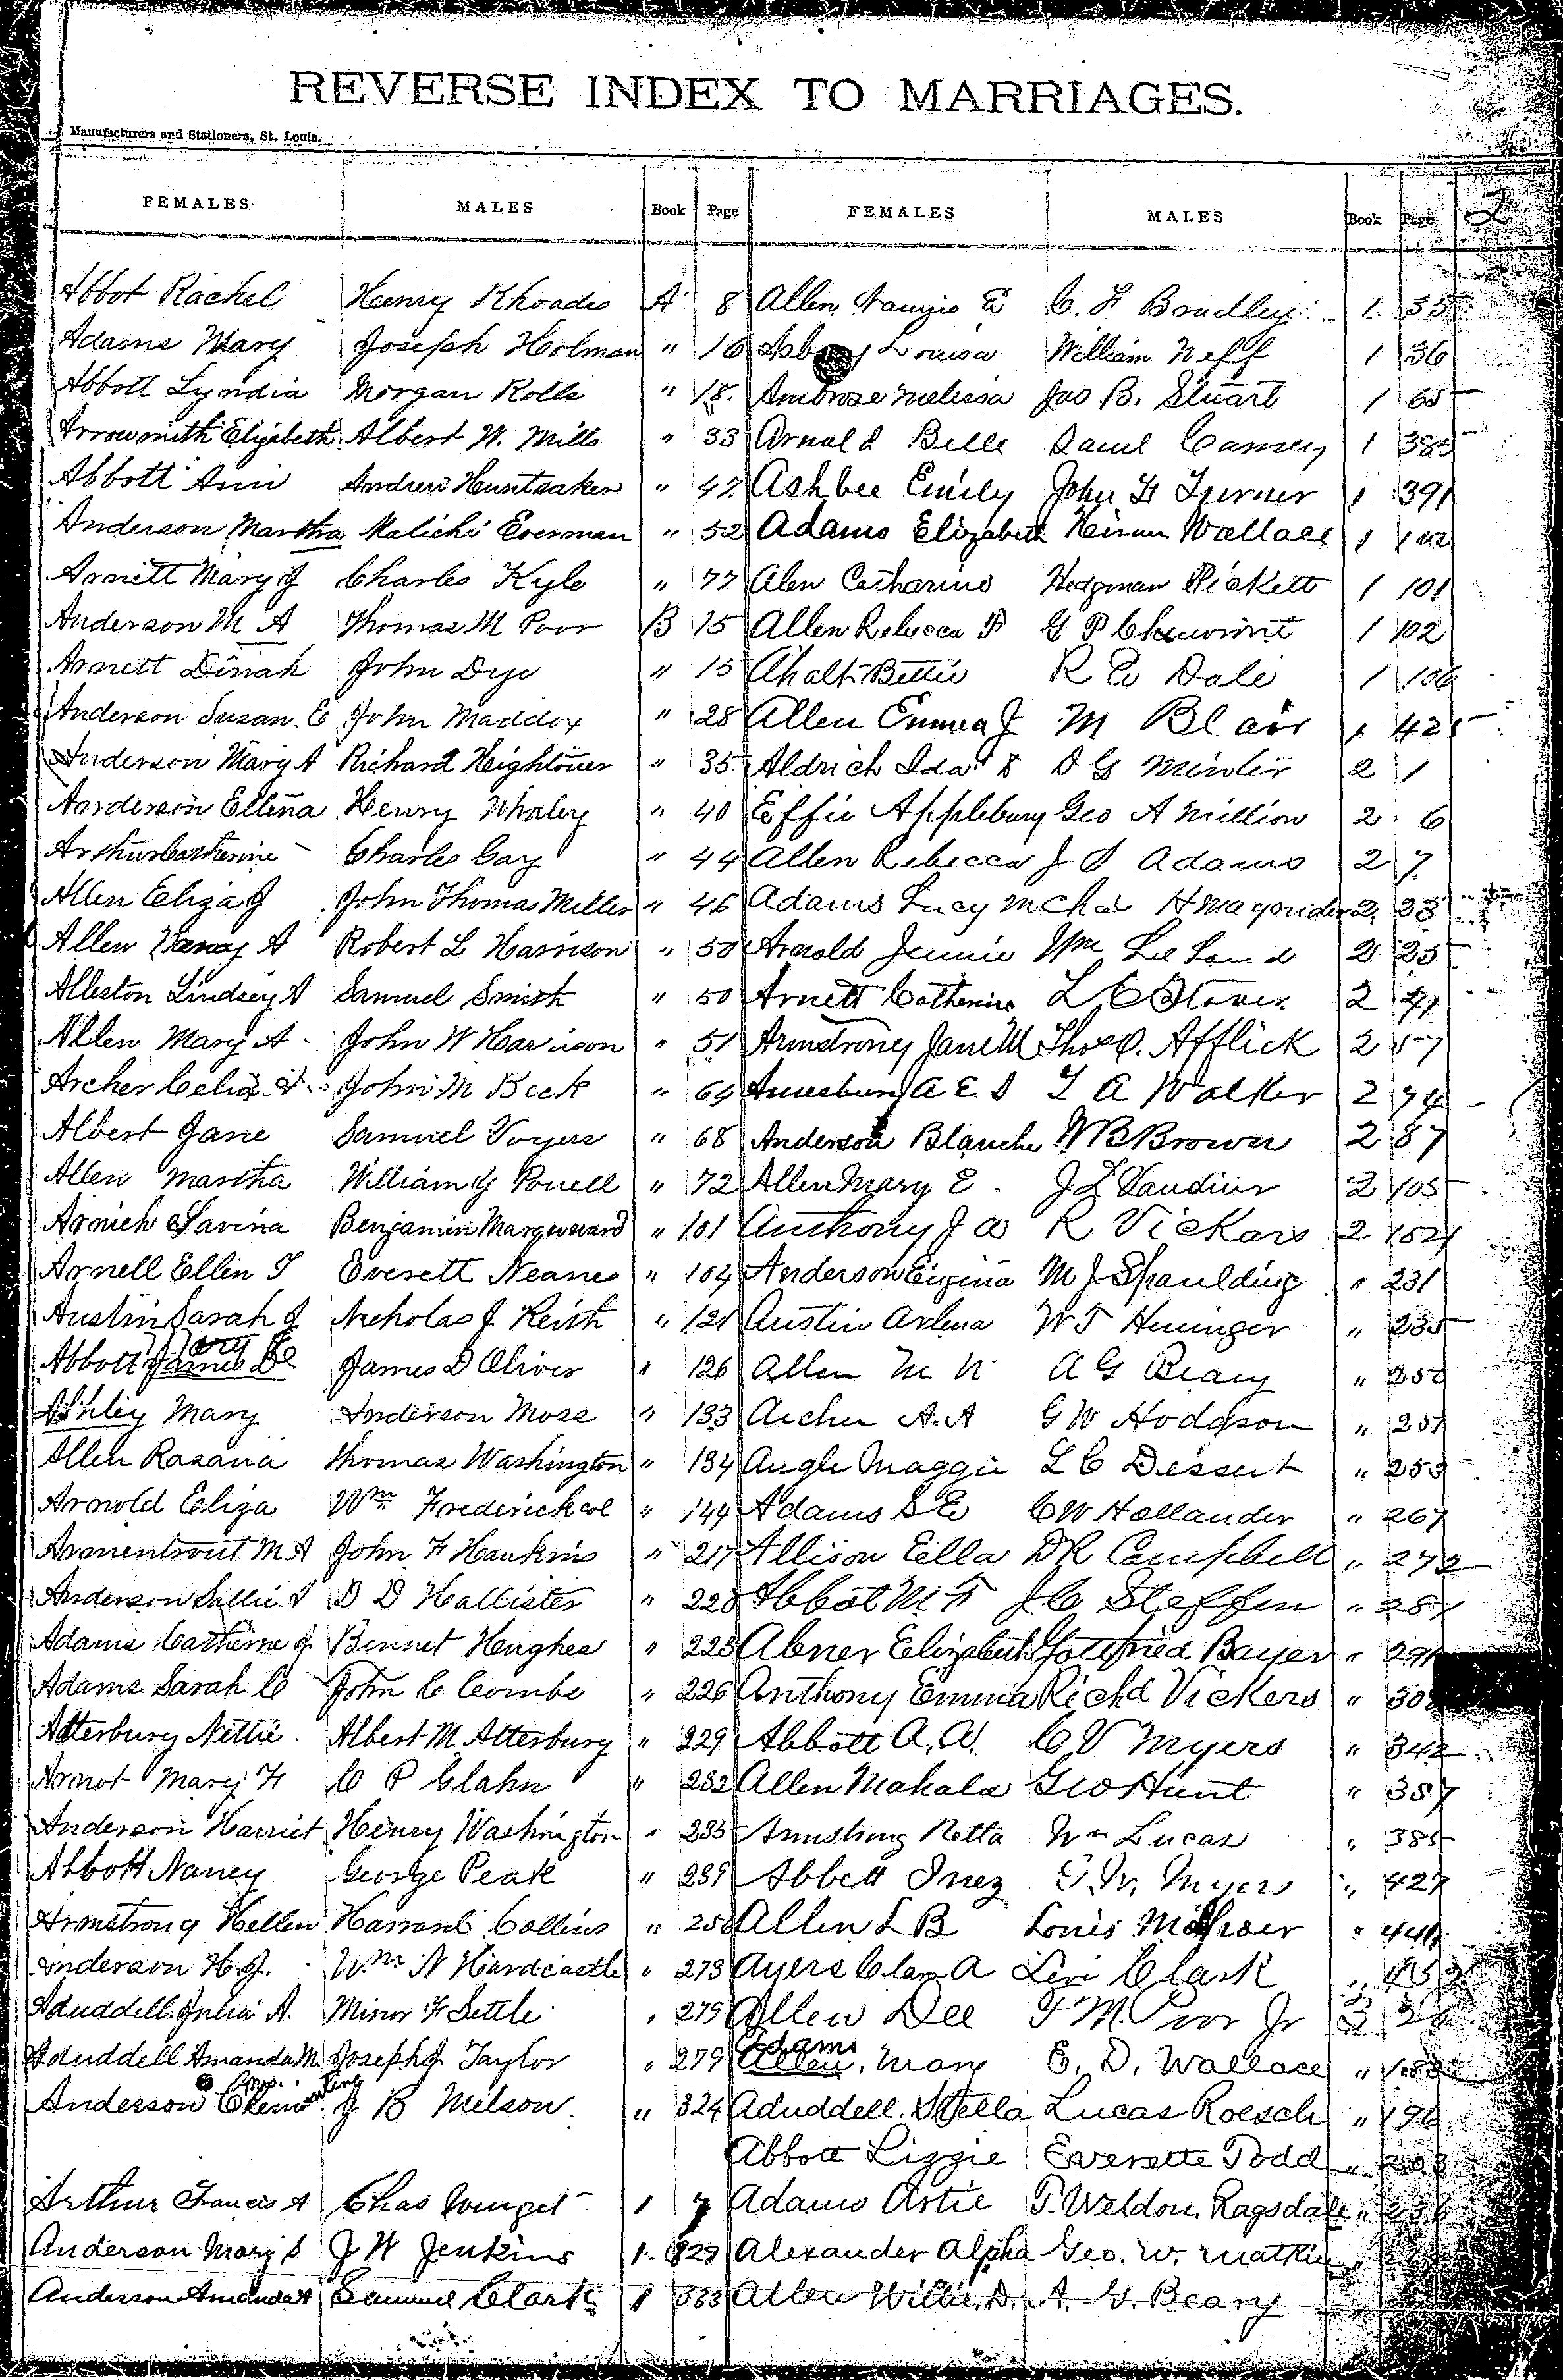 REVERSE INDEX TO MARRIAGES.
Manufacturers and Stationers, St. Louis.
FEMALES MALES Book Page FEMALES MALES Book Page
Abbot Rachel Henry Rhoades A 8 Allen E C. F Bradley 1 35
Adams Mary Joseph Holman " 16 Louisa William Neff 1 36
Abbott Lyndia Morgan Rolls " 18 Ambrose Melissa Jas B. Stuart 1 65
Arrowsmith Elizabeth Albert W. Mills " 33 Arnold Belle 1 385
Abbott Ann Andrew Huntsaker " 47 Ashbee Emily John H Turner 1 391
Anderson Martha Malichi Everman " 52 Adams Elizabeth Hiram Wallace 1
Arnett Mary J Charles Kyle " 77 Alen Catharine Hedgman Pickett 1 101
Anderson M A Thomas M Poor B 15 Allen Rebecca G P 1 102
Arnett Dinah John Dye " 15 Ahalt Bettie R E Dale 1 106
Anderson Susan E John Maddox " 28 Allen Emma J M Blair 1 421
Anderson Mary A Richard Hightower " 35 Aldrich Ida D G Minter 2 1
Anderson Ellena Henry Whaley " 40 Effie Applebury Geo A Million 2 6
Arthur Catherine Charles Gay " 44 Allen Rebecca J S Adams 2 7
Allen Eliza J John Thomas Miller " 46 Adams Lucy 2 23
Allen Nancy A Robert L Harrison " 50 Arnold Jennie Wm Le Land 2 25
Alleston Lindsey A Samuel Smith " 50 Arnett Catherine L C Stover 2 41
Allen Mary A John W Harrison " 51 Armstrong Jane M Thos O. Afflick 2 57
Archer Celia John M Beck " 64 Amesbury A E S T A Walker 2 74
Albert Jane Samuel Voyers " 68 Anderson Blanche W B Brown 2 87
Allen Martha William G Powell " 72 Allen Mary E J L Vaudiver 2 105
Arnich Savina Benjamin " 101 Anthony J W R Vickars 2
Arnell Ellen T Everett Neanes " 104 Anderson Eugena M J Spaulding " 231
Austin Sarah J Nicholas J Keith " 121 Austin Arlena W T Heninger " 235
Abbott Mary James D E James D Oliver " 126 Allen M N A G Beary " 250
Ashley Mary Anderson Moss " 133 Archer A. A G W Hodgson " 251
Allen Rasana Thomas Washington " 134 Angle Maggie L C Dessert " 253
Arnold Eliza Wm Frederick " 144 Adams S E C W Hollander " 267
Armentrout M A John F Hankins " 217 Allison Ella D R Campbell " 272
Anderson Sallie D D Hallister " 220 Abbot M F J C Steffen " 287
Adams Catherine J Bennet Hughes " 223 Abner Elizabeth Gottfried Bayer " 291
Adams Sarah C John C Combs " 226 Anthony Emma Richd Vickers "
Atterbury Nettie Albert M Atterbury " 229 Abbott A. A. C V Myers " 342
Arnot Mary F C P Glahn " 232 Allen Mahala Geo Hunt " 357
Anderson Harriet Henry Washington " 235 Armstrong Netta Wm Lucas " 385
Abbott Nancy George Peak " 239 Abbett Inez Myers " 427
Armstrong Hellen Collins " 250 Allen L B Louis " 441
Anderson H. J. Wm N Hardcastle " 273 Ayers Clara A Levi Clark "
Aduddell Julia A. Minor F Settle " 279 Allen Dee F M. Poor Jr 3
Aduddell Amanda M Joseph J Taylor " 279 Adams Allen, Mary E. D. Wallace "
Anderson Mrs. Clementine J B Melson " 324 Aduddell, Stella Lucas Roesch " 196
Abbott Lizzie Everette Todd "
Arthur Francis A Chas 1 7 Adams Artie T. Weldon Ragsdale "
Anderson Mary S J W Jenkins 1 329 Alexander Alpha Geo. W. "
Anderson Amanda A Samuel Clark 1 333 Allen Willie D. A. G. Beary